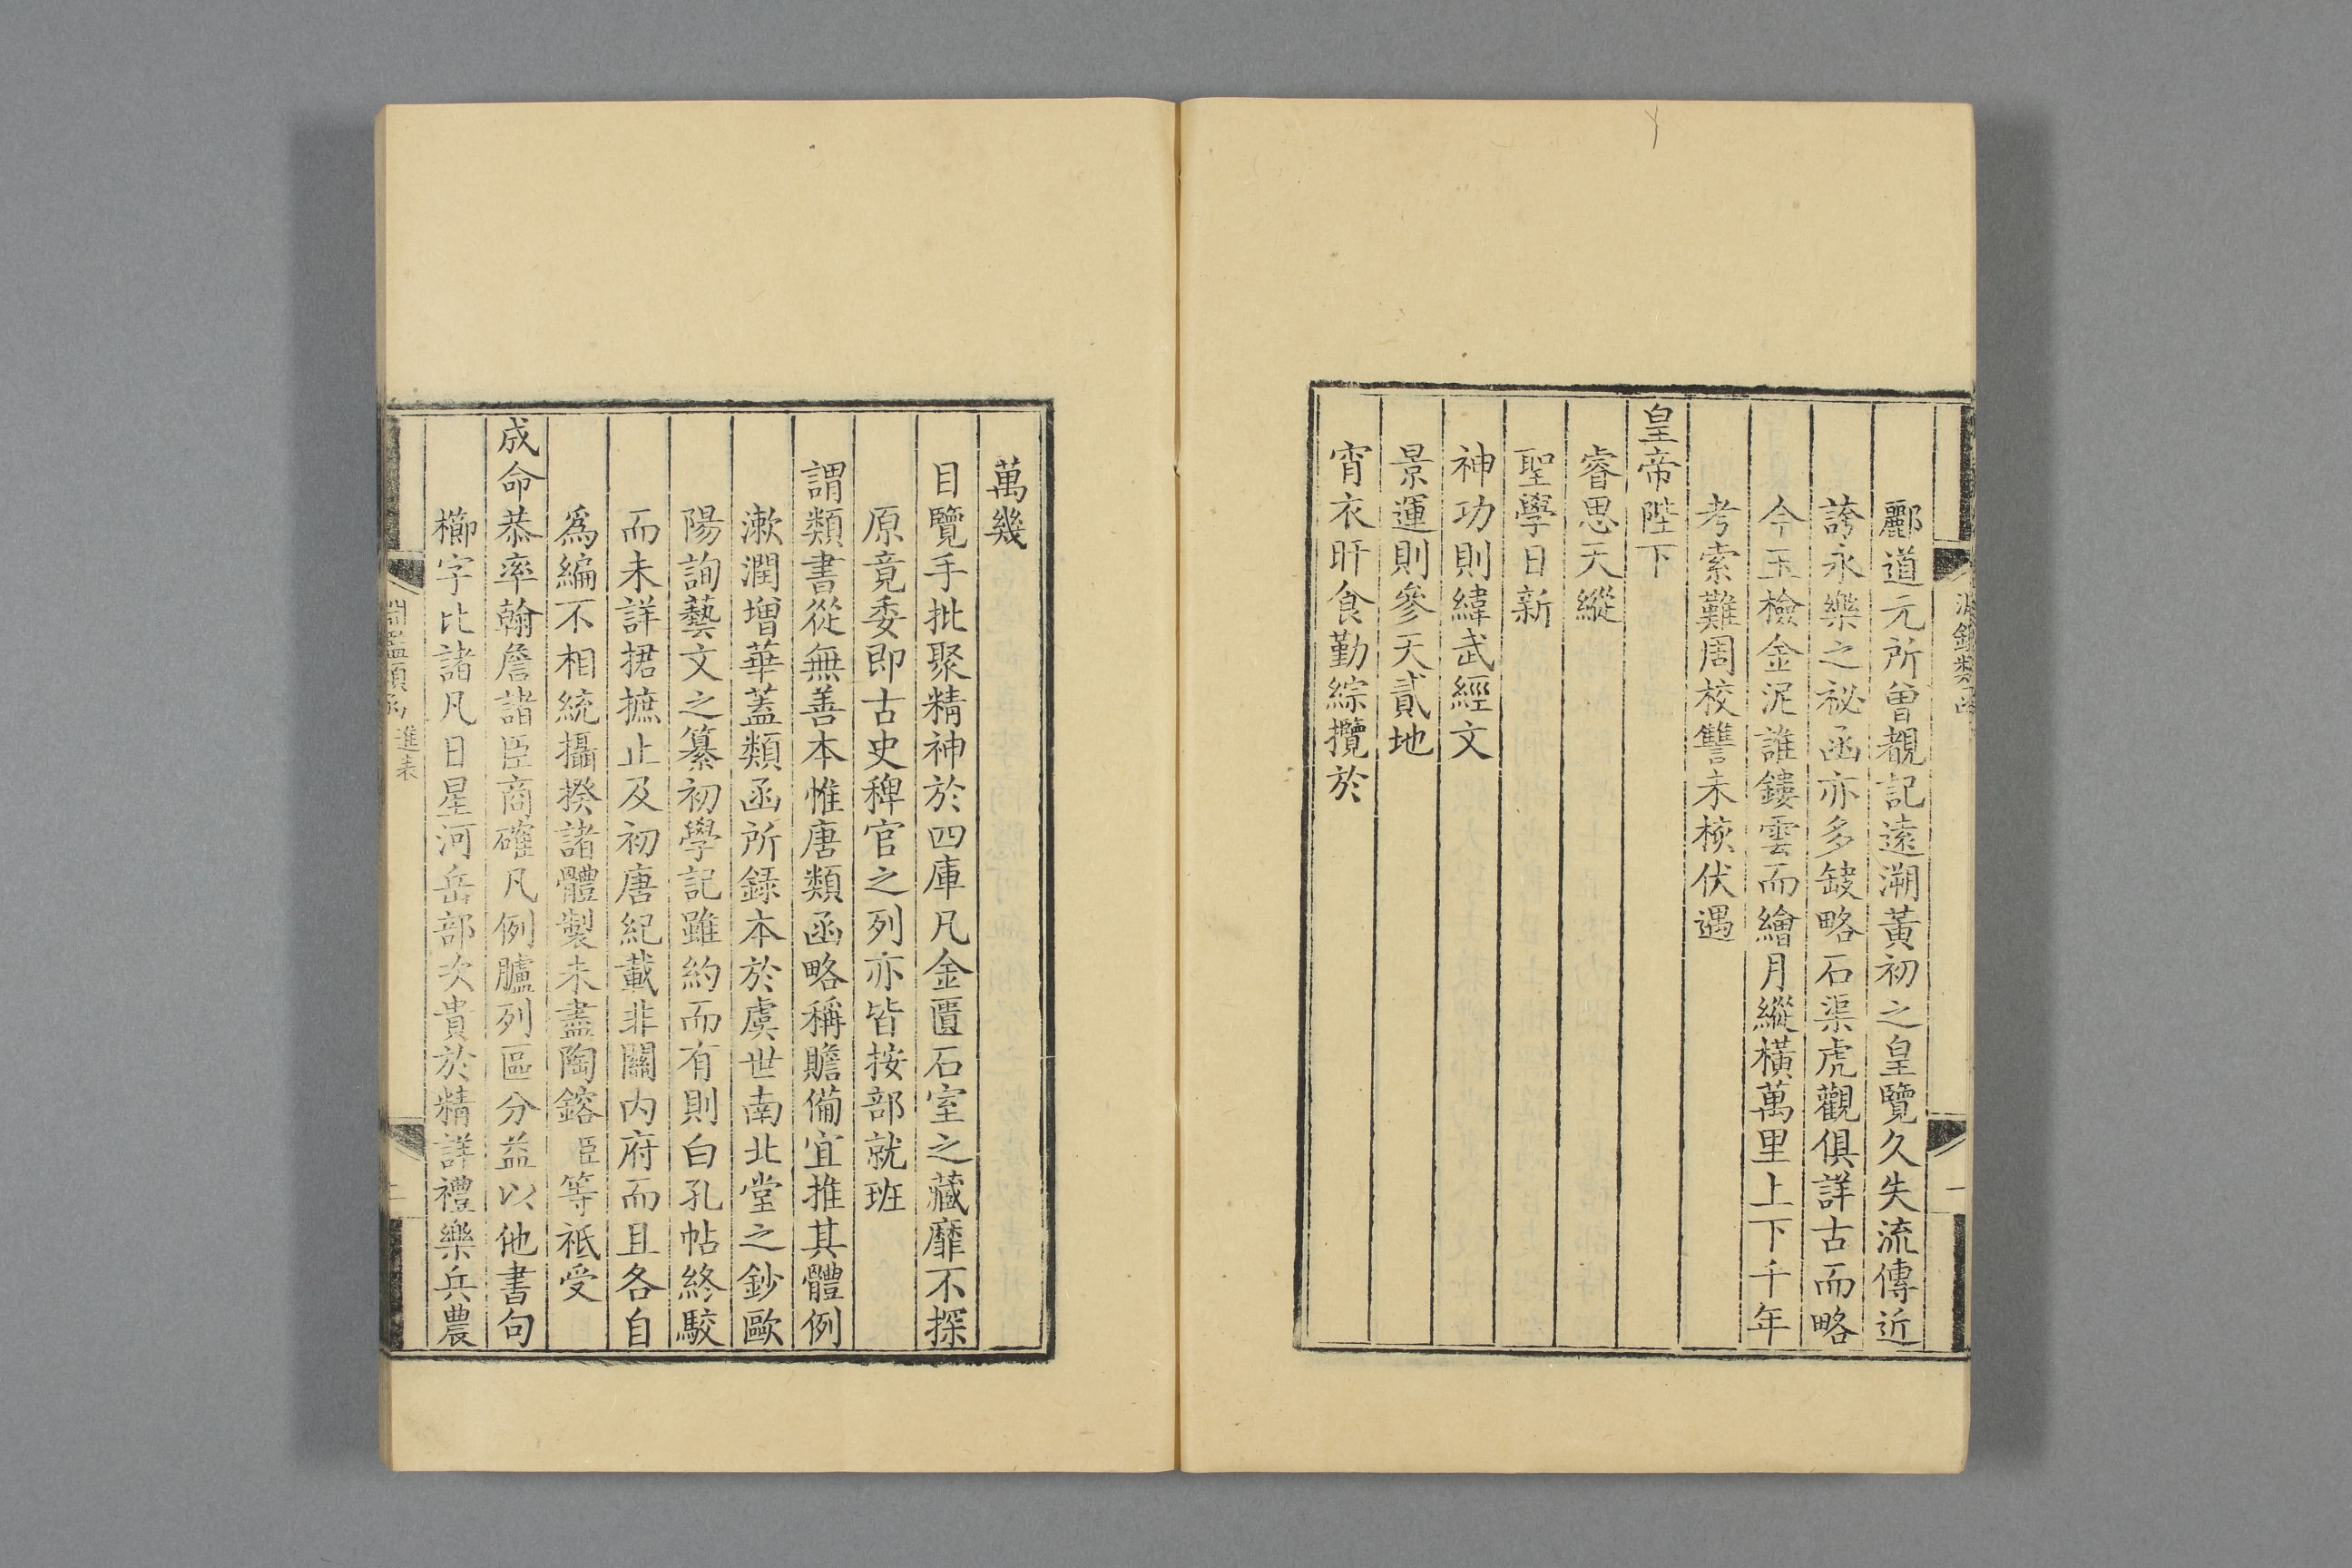 酈道元所曾覩記遠溯黃初之皇覽久失流傳近
誇永樂之祕函亦多缺略石渠虎觀俱詳古而略
今玉檢金泥誰鏤雲而繪月縱橫萬里上下千年
考索難周校讐未核伏遇
皇帝陛下
睿思天縱
聖學日新
神功則緯武經文
景運則參天貳地
宵衣旰食勤綜攬於
萬幾
目覽手批聚精神於四庫凡金匱石室之藏靡不探
原竟委即古史稗官之列亦皆按部就班
謂類書從無善本惟唐類函略稱贍備宜推其體例
漱潤增華蓋類函所錄本於虞世南北堂之鈔歐
陽詢藝文之纂初學記雖約而有則白孔帖終駮
而未詳捃摭止及初唐紀載非關內府而且各自
為編不相統攝揆諸體製未盡陶鎔臣等祇受
成命恭率翰詹諸臣商確凡例臚列區分益以他書句
櫛字比諸凡日星河岳部次貴於精詳禮樂兵農
淵鑑類函 進表